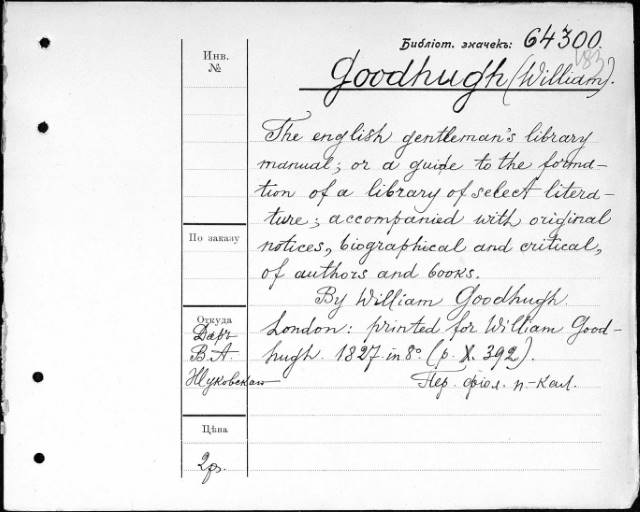 Библіот. значекъ: 64300.
183
Goodhugh (William).
Инв.
№
The english gentleman's library
manual; or a guide to the forma-
tion of a library of select litera-
ture; accompanied with original
notices, biographical and critical,
of authors and books.
By William Goodhugh.
London: printed for William Good-
hugh. 1827. in 8º. (p. X. 392).
Пер. фіол. п-кал.
По заказу
Откуда
Даръ
В. А.
Жуковскаго
Цѣна
2 р.